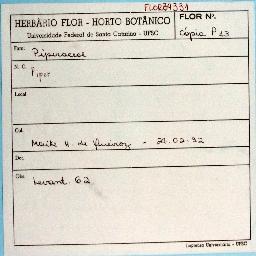 FLOR34331
HERBÁRIO FLOR - HORTO BOTÂNICO
Universidade Federal de Santa Catarina - UFSC
FLOR Nº.
Cópia P 13
Fam. Piperaceae
N. C. Piper
Local
Col. Maike H. de Queiroz - 24.02.92
Det.
Obs. Levant. 62
Imprensa Universitária - UFSC